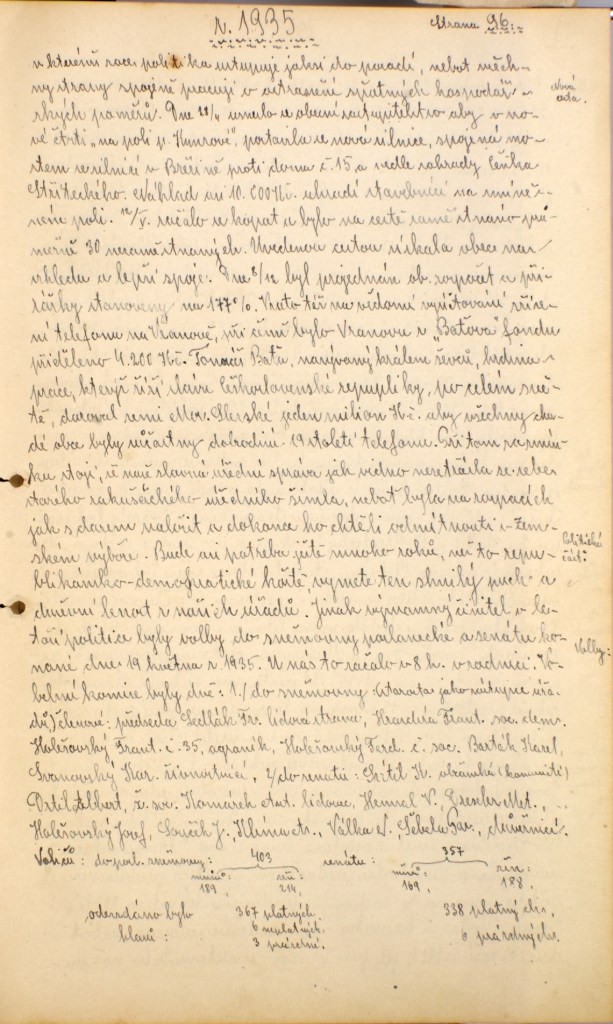 r. 1935
Strana 96.
v kterémž roce politika ustupuje jaksi do pozadí, neboť všech-
ny strany spojeně pracují o odstranění špatných hospodář-
ských poměrů. Dne usneslo se obecní zastupitelstvo aby v no-
vé čtvrti „na poli p. Kunrově", postavila se nová silnice, spojená mo-
stem se silnicí v Břežině proti domu č. 15, a vedle zahrady Čeňka
Střiteckého. Náklad asi 10.000 Kč. uhradí stavebníci na zmíně-
ném poli. začalo se kopat a bylo na cestě zaměstnáno prů-
měrně 30 nezaměstnaných. Uvedenou cestou získala obec na
vzhledu a lepší spoje. Dne 8/12 byl projednán ob. rozpočet a při-
rážky stanoveny na 177%. Vzato též na vědomí vyúčtování zříze-
ní telefonu na Vranově, při čemž bylo Vranovu z „Baťova" fondu
přiděleno 4.200 Kč. Tomáš Baťa, nazývaný králem ševců, hrdina
práce, kterýž šíří slávu Československé republiky, po celém svě-
tě, daroval zemi Mor. Slezské jeden milion Kč. aby všechny chu-
dé obce byly účastny dobrodiní 19 století telefonu. Při tom za zmín-
ku stojí, že naše slavná úřední správa jak vidno nesetřásla se sebe
starého rakušáckého úředního šimla, neboť byla na rozpacích
jak s darem naložit a dokonce ho chtěli odmítnouti v Zem-
ském výboře. Bude asi potřeba ještě mnoho roků, než to repu-
blikánsko-demokratické koště, vymete ten shnilý puch a
duševní lenost z našich úřadů. Jinak významný činitel v le-
tošní politice byly volby do sněmovny poslanecké a senátu ko-
nané dne 19 května r. 1935. U nás to začalo v 8 h. v radnici. Vo-
lební komise byly dvě: 1./ do sněmovny (starosta jako zástupce úřa-
dů,) členové: předseda Sedlák Fr. lidová strana, Hrandůra Frant. soc. dem.
Holešovský Frant. č. 35, agrárník, Holešovský Ferd. č. soc. Barták Karel,
Svanovský Kar. živnostníci, 2/ do senátu: občanská (komunisti)
Albert, č. soc. Komárek Ant. lidovec, Hensel V., Met.,
Holešovský Josef, Souček J., Klíma st., Válka V., Šebela důvěrníci.
Voličů: do posl. sněmovny: 403 senátu: 357
mužů: žen: mužů: žen:
189, 214, 169, 188,
odevzdáno bylo 367 platných, 338 platných,
hlasů: 6 neplatných, 6 prázdných.
3 prázdné.
Nová
cesta.
Politická
část:
Volby: